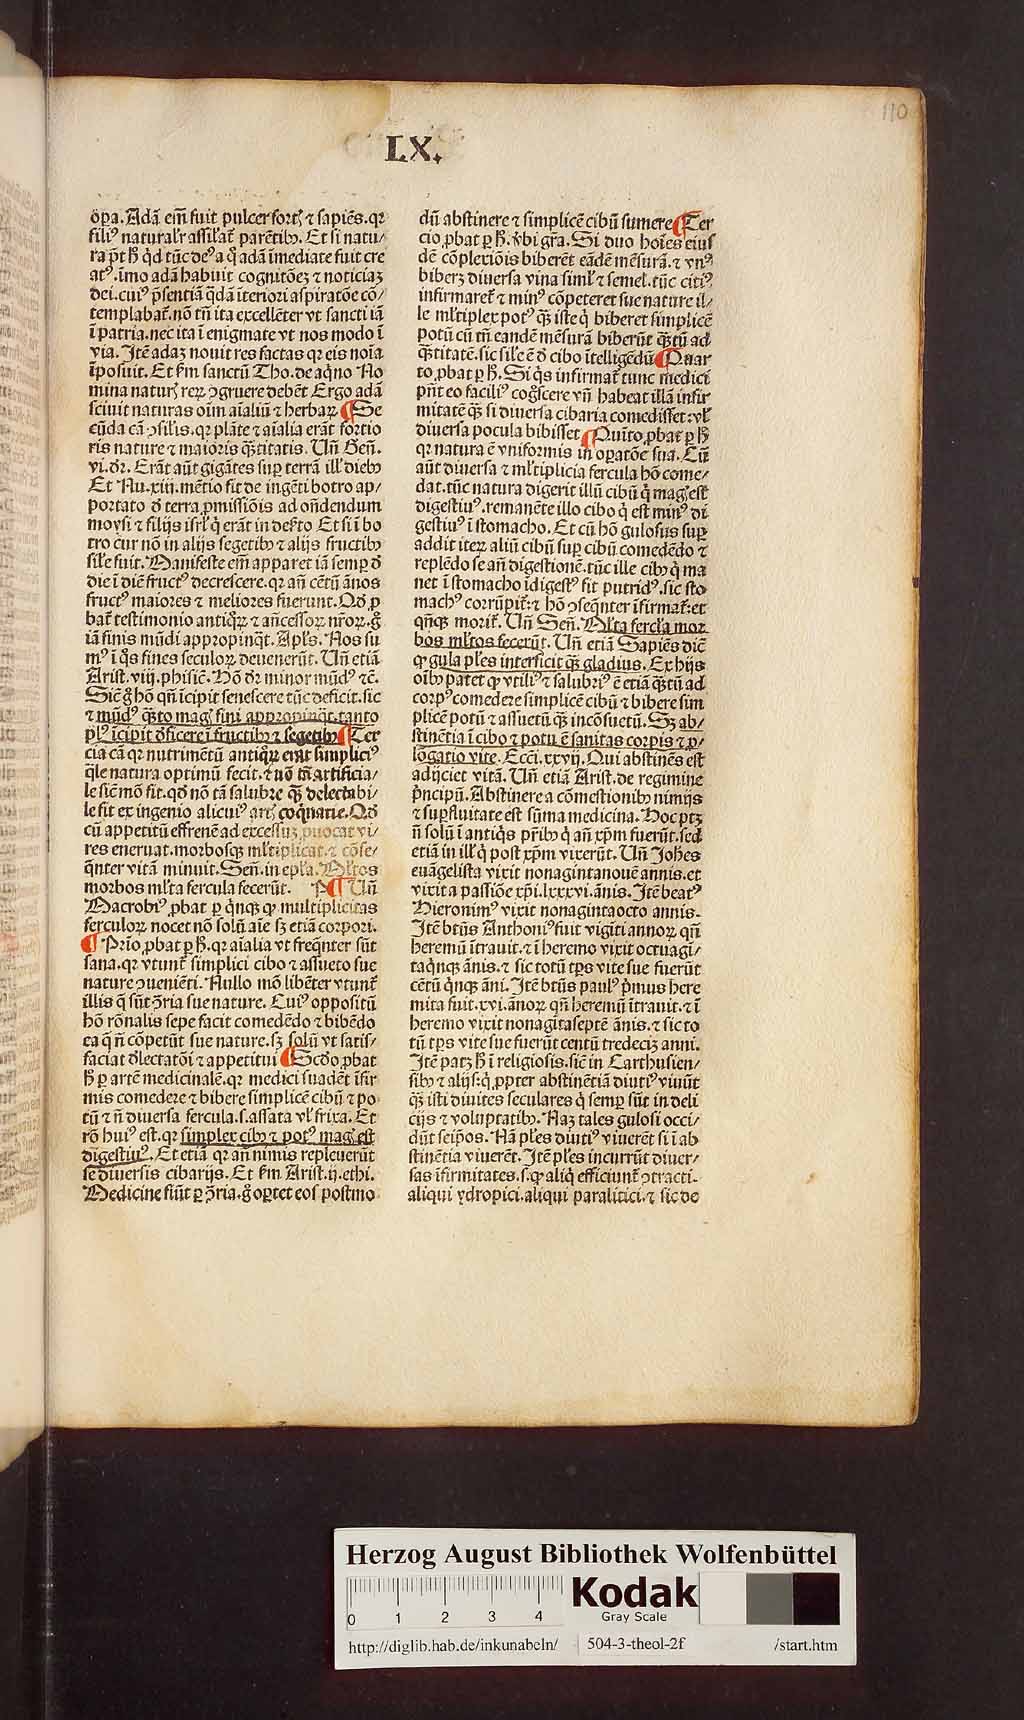 110
LX.
õp̄a. Adã em̃ fuit pulcer fortꝭ ⁊ sapiẽs. qꝛ
filiꝰ naturalr̃ assilat᷑ parẽtibꝫ. Et si natu⸗
ra p̃t ħ qd tũc deꝰ a q̇ adã imediate fuit cre
atꝰ. imo adã habuit cognitõeꝫ ⁊ noticiaꝫ
dei. cuiꝰ p̃sentiã q̃dã iteriori aspiratõe cõ⸗
templabat᷑. nõ tñ ita excellẽter vt sancti iã
ĩ patria. nec ita ĩ enigmate vt nos modo ĩ
via. Itẽ adaꝫ nouit res factas qꝛ eis noĩa
ĩposuit. Et ẜm sanctũ Tho. de aq̇no No
mina naturꝭ reꝝ ꝯgruere debẽt Ergo adã
sciuit naturas oĩm aĩaliũ ⁊ herbaꝝ ¶ Se
cũda cã ꝯsilis. qꝛ plãte ⁊ aĩalia erãt fortio
ris nature ⁊ maioris q̃titatis. Uñ Geñ.
vi. dꝛ. Erãt aũt gigãtes suꝑ terrã ill' diebꝫ
Et Nu. xiii. mẽtio fit de ingẽti botro ap⸗
portato đ terra ꝓmissiõis ad oñdendum
moysi ⁊ filijs isrl' q̇ erãt in deẜto Et si ĩ bo
tro cur nõ in alijs segetibꝫ ⁊ alijs fructibꝫ
sil'e fuit. Manifeste em̃ apparet iã semꝑ đ
die ĩ diẽ fructꝰ decrescere. qꝛ añ cẽtũ ãnos
fructꝰ maiores ⁊ meliores fuerunt. Qđ ꝓ
bat᷑ testimonio antiq̇ꝝ ⁊ añcessoꝝ nr̃oꝝ. g̊
iã finis mũdi appropinq̃t. Apl's. Nos su
mꝰ ĩ q̊s fines seculoꝝ deuenerũt. Uñ etiã
Arist. viij. phisic̃. Hõ dꝛ minor mũdꝰ ⁊c̃.
Sic̃ g̊ hõ qñ icipit senescere tũc deficit. sic
⁊ mũdꝰ q̃to magꝭ fini appropinq̃t. tanto
plꝰ ĩcipit đficere ĩ fructibꝫ ⁊ segetibꝫ ¶ Ter
cia cã qꝛ nutrimẽtũ antiq̇ꝝ erat simpliciꝰ
q̃le natura optimũ fecit. ⁊ nõ tñ artificia⸗
le sic̃ mõ fit. qđ nõ tã salubꝛe q̃ꝫ delectabi⸗
le fit ex ingenio alicuiꝰ artꝭ coq̇narie. Qđ
cũ appetitũ effrenẽ ad excessuꝫ ꝓuocat vi⸗
res eneruat. morbosqꝫ ml'tiplicat. ⁊ cõse⸗
q̃nter vitã minuit. Señ. in epl'a. Ml'tos
morbos ml'ta fercula fecerũt. ¶ Uñ
Macrobiꝰ ꝓbat ꝑ q̇nqꝫ qꝙ multiplicitas
ferculoꝝ nocet nõ solũ aĩe sꝫ etiã corpori.
¶ Prĩo ꝓbat ꝑ ħ. qꝛ aĩalia vt freq̃nter sũt
sana. qꝛ vtunt᷑ simplici cibo ⁊ assueto sue
nature ꝯueniẽti. Nullo mõ libẽter vtunt᷑
illis q̃ sũt ꝯ̃ria sue nature. Cuiꝰ oppositũ
hõ rõnalis sepe facit comedẽdo ⁊ bibẽdo
ea q̃ ñ cõpetũt sue nature. sꝫ solũ vt satis⸗
faciat đlectatõi ⁊ appetitui ¶ Scđo ꝓbat
ħ ꝑ artẽ medicinalẽ. qꝛ medici suadẽt ĩfir
mis comedere ⁊ bibere simplicẽ cibũ ⁊ po⸗
tũ ⁊ ñ diuersa fercula. s. assata vl' frixa. Et
rõ huiꝰ est. qꝛ simplex cibꝫ ⁊ potꝰ magꝭ est
digestiuꝰ. Et etiã qꝛ añ nimis repleuerũt
se diuersis cibarijs. Et ẜm Arist. ij. ethi.
Medicine fiũt ꝑ ꝯ̃ria. g̊ oꝑtet eos postmo
dũ abstinere ⁊ simplicẽ cibũ sumere ¶ Ter
cio ꝓbat ꝑ ħ. v̾bi gr̃a. Si duo hoĩes eius
dẽ cõplexiõis biberẽt eãdẽ mẽsurã. ⁊ vnꝰ
biberꝫ diuersa vina siml' ⁊ semel. tũc citiꝰ
infirmaret᷑ ⁊ minꝰ cõpeteret sue nature il⸗
le ml'tiplex potꝰ q̃ꝫ iste q̇ biberet simplicẽ
potũ cũ tñ eandẽ mẽsurã biberũt q̃tũ ad
q̃titatẽ. sic sil'e ẽ đ cibo ĩtelligẽdũ ¶ Quar
to ꝓbat ꝑ ħ. Si q̇s infirmat᷑ tunc medici
pñt eo faciliꝰ cog̊scere vñ habeat illã infir
mitatẽ q̃ꝫ si diuersa cibaria comedisset: vl'
diuersa pocula bibisset ¶ Quĩto ꝓbat ꝑ ħ
qꝛ natura ẽ vniformis in oꝑatõe sua. Cũ
aũt diuersa ⁊ ml'tiplicia fercula hõ come⸗
dat. tũc natura digerit illũ cibũ q̇ magꝭ est
digestiuꝰ. remanẽte illo cibo q̇ est minꝰ di
gestiuꝰ ĩ stomacho. Et cũ hõ gulosus suꝑ
addit iteꝝ aliũ cibũ suꝑ cibũ comedẽdo ⁊
replẽdo se añ digestionẽ. tũc ille cibꝫ q̇ ma
net ĩ stomacho ĩdigestꝰ fit putridꝰ. sic sto
machꝰ corrũpit᷑: ⁊ hõ ꝯseq̃nter ĩfirmat᷑: et
qñqꝫ morit᷑. Uñ Señ. Ml'ta fercl'a mor
bos ml'tos fecerũt. Uñ etiã Sapiẽs dic̃
ꝙ gula pl'es interficit q̃ꝫ gladius. Ex hijs
oĩbꝫ patet ꝙ vtiliꝰ ⁊ salubriꝰ ẽ etiã q̃tũ ad
corpꝰ comedere simplicẽ cibũ ⁊ bibere sim
plicẽ potũ ⁊ assuetũ q̃ꝫ incõsuetũ. Sꝫ ab⸗
stinẽtia ĩ cibo ⁊ potu ẽ sanitas corpis ⁊ ꝓ⸗
lõgatio vite. Ecci. xxvij. Qui abstinẽs est
adijciet vitã. Uñ etiã Arist. de regimine
p̃ncipũ. Abstinere a cõmestionibꝫ nimijs
⁊ suꝑfluitate est sũma medicina. Hoc ptꝫ
ñ solũ ĩ antiq̇s pr̃ibꝫ q̇ añ xp̃m fuerũt. sed
etiã in ill' q̇ post xp̃m vixerũt. Uñ Johẽs
euãgelista vixit nonagintanouẽ annis. et
vixit a passiõe xp̃i. lxxxvi. ãnis. Itẽ beatꝰ
Hieronimꝰ vixit nonagintaocto annis.
Itẽ btũs Anthoniꝰ fuit vigĩti annoꝝ qñ
heremũ ĩtrauit. ⁊ ĩ heremo vixit octuagĩ⸗
taq̇nqꝫ ãnis. ⁊ sic totũ tp̃s vite sue fuerũt
cẽtũ q̇nqꝫ ãni. Itẽ btũs paulꝰ p̃mus here
mita fuit. xvi. ãnoꝝ qñ heremũ ĩtrauit. ⁊ ĩ
heremo vixit nonagĩtaseptẽ ãnis. ⁊ sic to
tũ tp̃s vite sue fuerũt centũ tredeciꝫ anni.
Itẽ patꝫ ħ ĩ religiosis. sic̃ in Carthusien⸗
sibꝫ ⁊ alijs: q̇ ꝓpter abstinẽtiã diutiꝰ viuũt
q̃ꝫ isti diuites seculares q̇ semꝑ sũt in deli
cijs ⁊ voluptatibꝫ. Naꝫ tales gulosi occi⸗
dũt seip̃os. Nã pl'es diutiꝰ viuerẽt si ĩ ab
stinẽtia viuerẽt. Itẽ pl'es incurrũt diuer⸗
sas ĩfirmitates. s. ꝙ aliq̇ efficiunt᷑ ꝯtracti.
aliqui ydropici. aliqui paralitici. ⁊ sic de
Herzog August Bibliothek Wolfenbüttel
0 1 2 3 4
Kodak
Gray Scale
http://diglib.hab.de/inkunabeln/ 504-3-theol-2f /start.htm